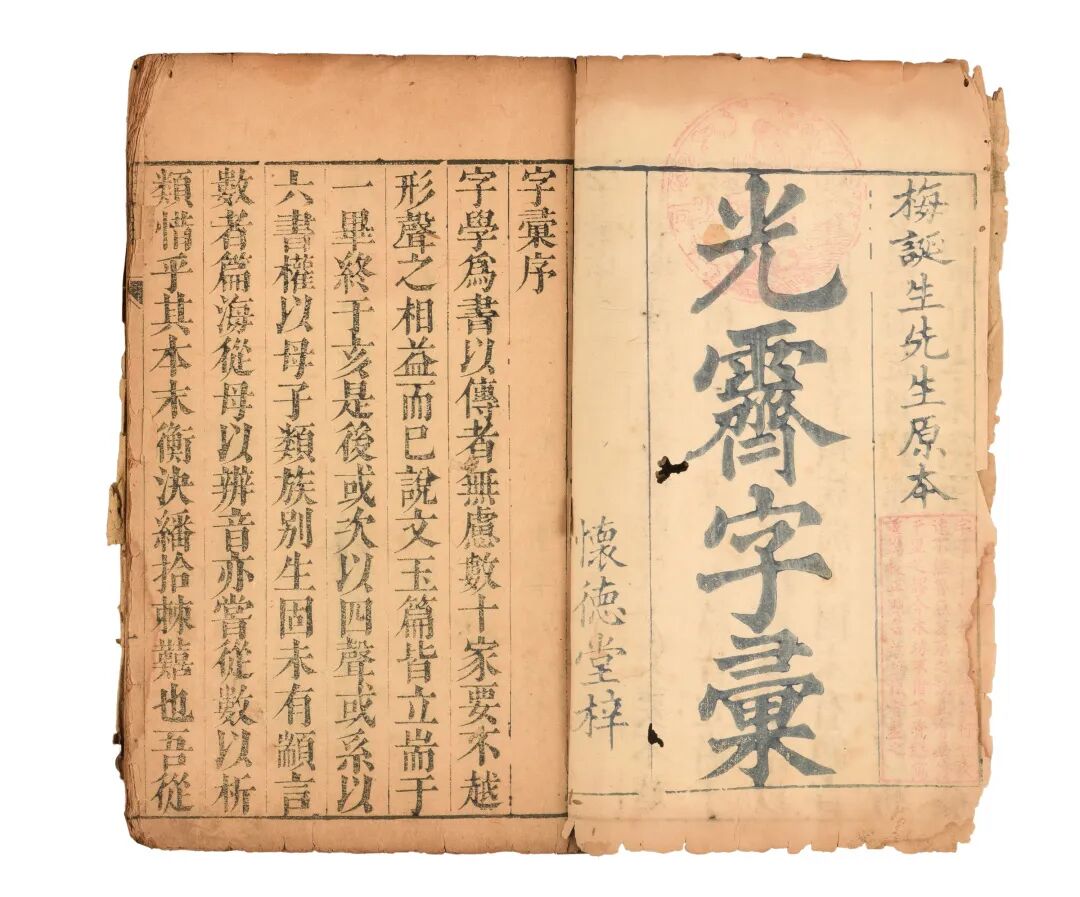 梅誕生先生原本
光霽字彙
懷德堂梓
字彙序
字學為書以傳者無慮數十家要不越
形聲之相益而已說文玉篇皆立耑于
一畢終于亥是後或次以四聲或系以
六書權以母子類族別生固未有顓言
數者篇海從母以辨音亦嘗從數以析
類惜乎其本末衡決繙拾棘難也吾從